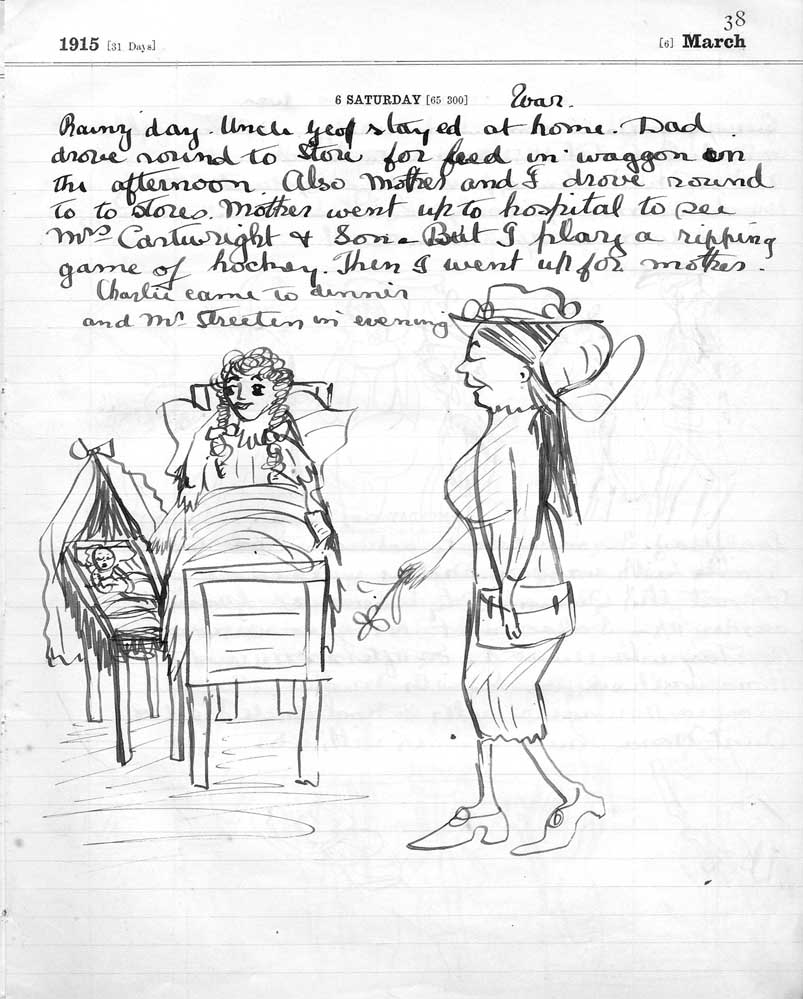 38
1915 [31 Days] [6] March
6 SATURDAY [65 300] War.
Rainy day. Uncle Geof stayed at home. Dad
drove round to store for feed in waggon in
the afternoon. Also Mother and I drove round
to to stores. Mother went up to hospital to see
Mrs Cartwright & Son. But I play a ripping
game of hockey. Then I went up for mother.
Charlie came to dinner
and Mr Streeten in evening